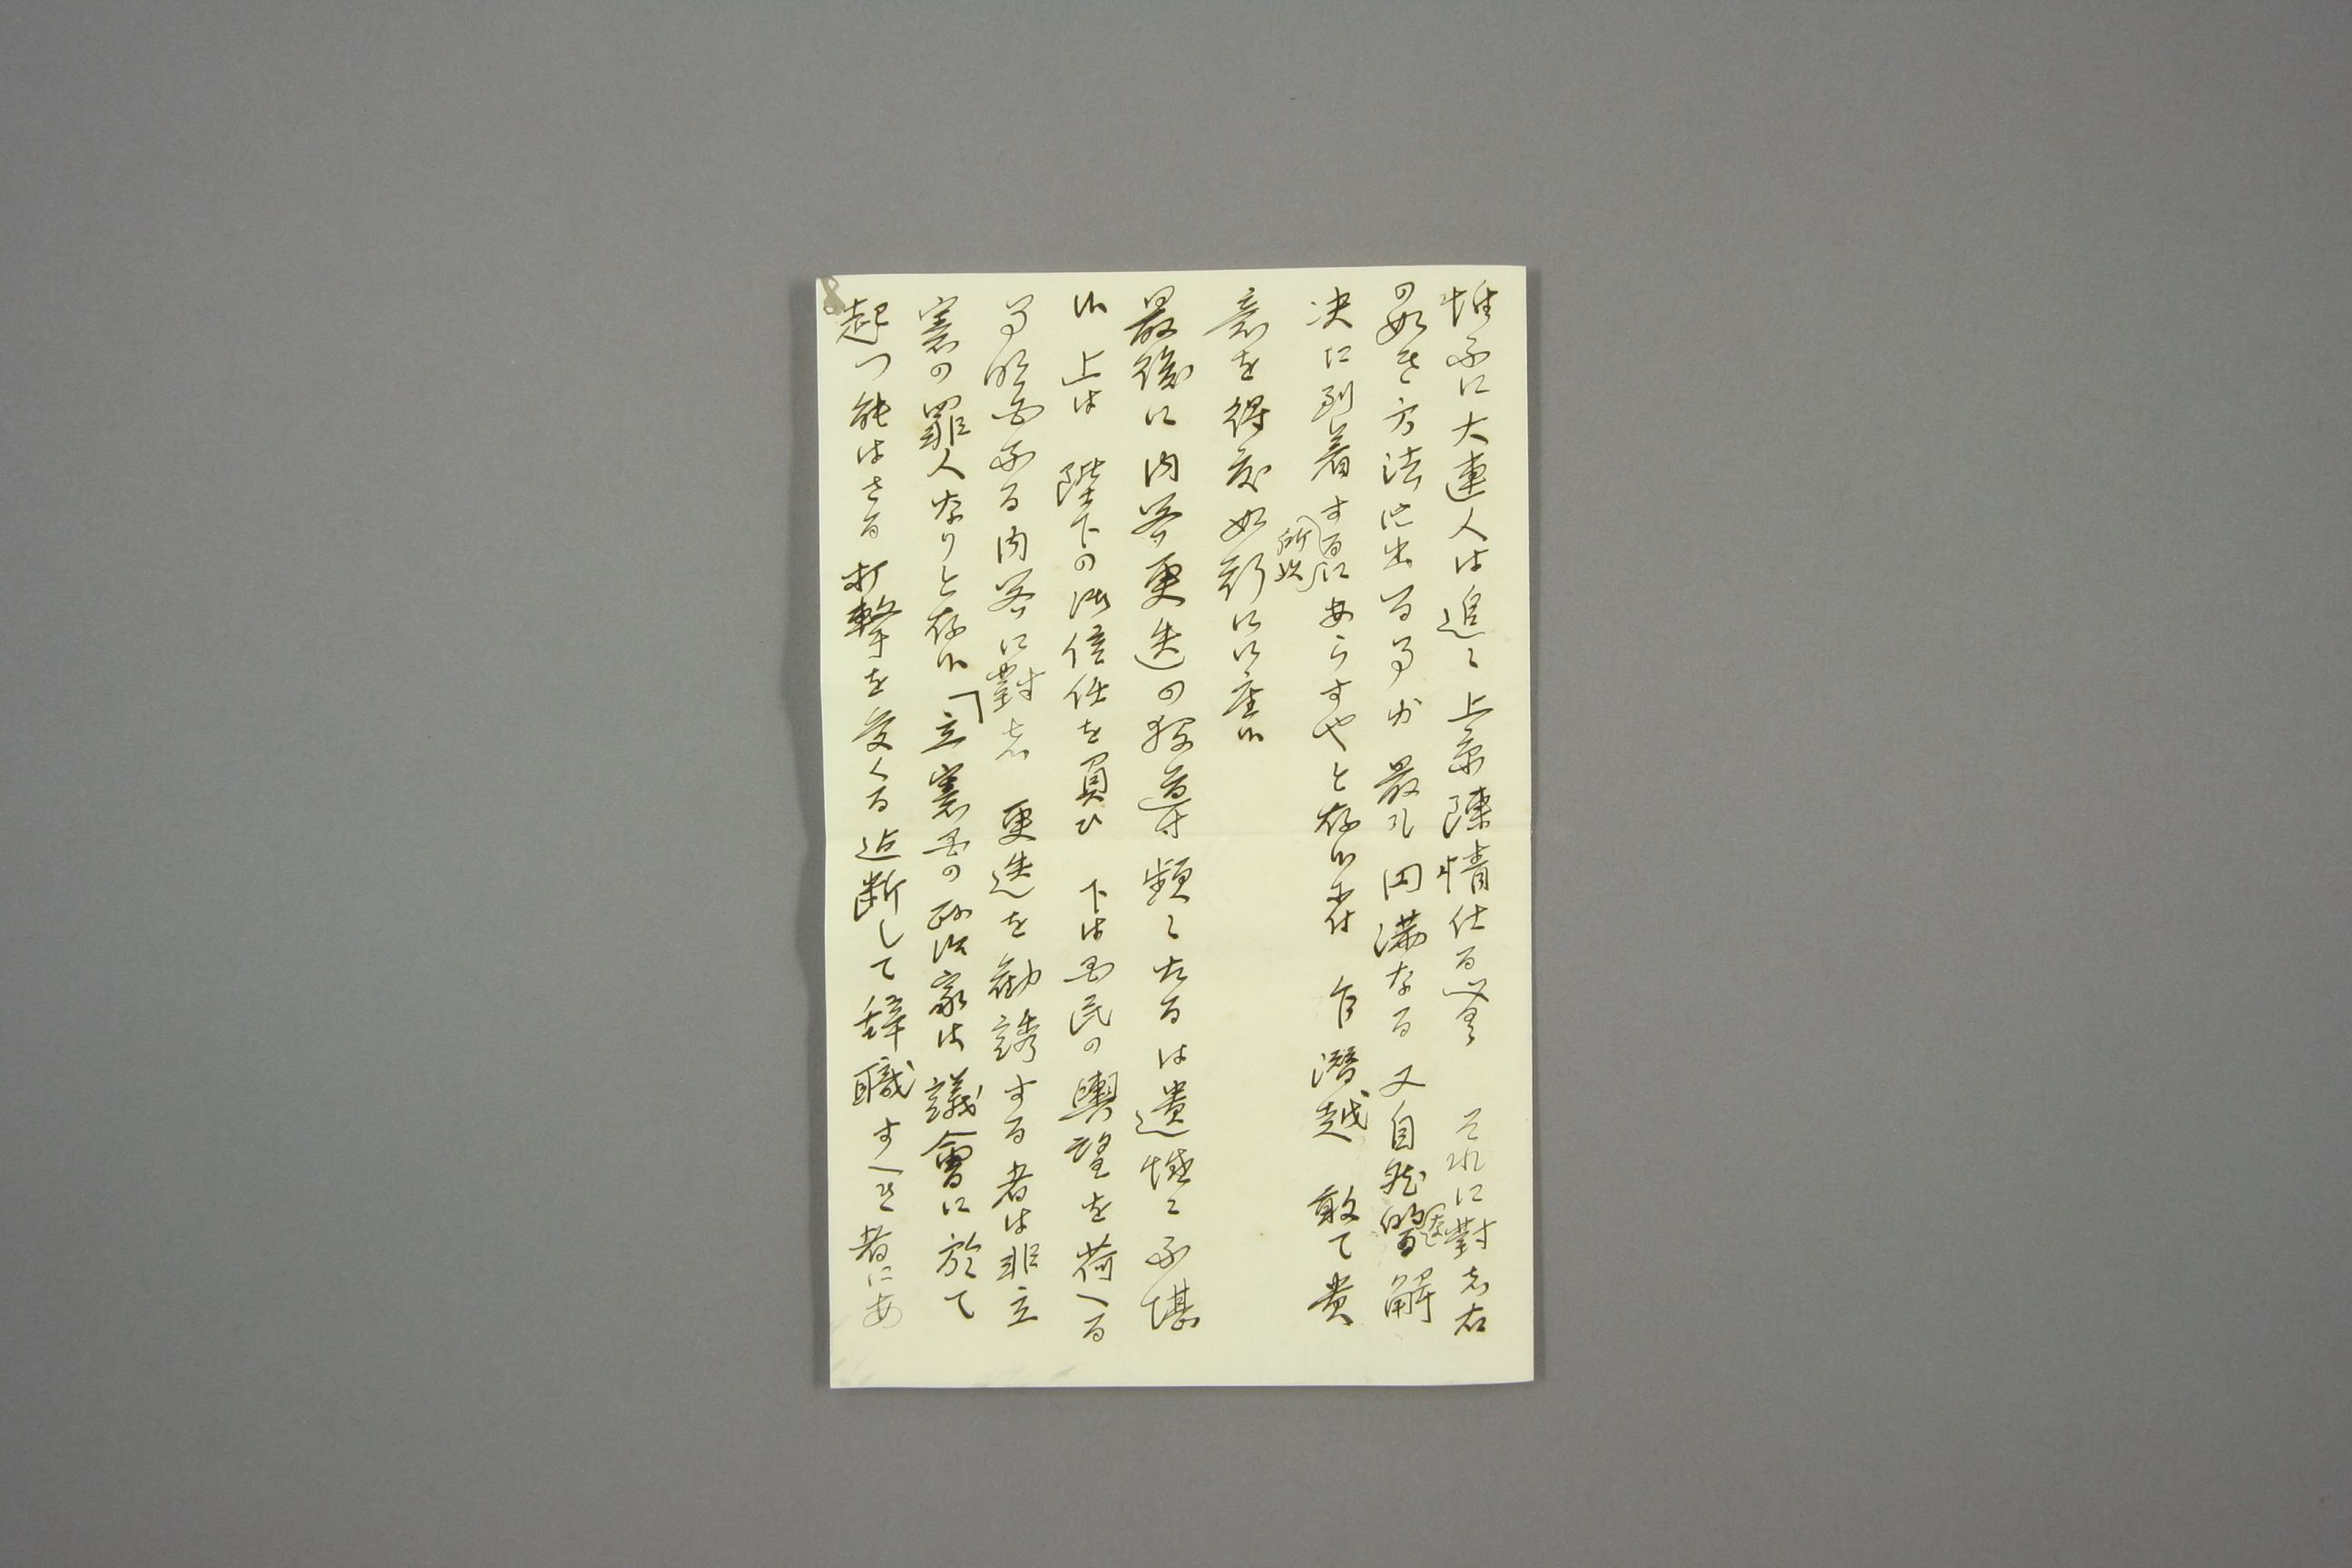 惟ふに大連人は追々上京陳情仕る筈 それに對し右
の如き方法に出る事が最も円満なる又自然的解
決に到着する所以にあらすやと存候付 乍潜越 敢て貴
意を得度如斯に御座候
最後に内閣更迭の輿導頻々たるは遺憾に不堪
候 上は 陛下の御信任を負ひ 下は国民の輿望を荷へる
事明白なる内閣に對し 更迭を勧誘する者は非立
憲の罪人なりと存候「立憲国の政治家は議會に於て
起つ能はさる打撃を受くる迄断して辞職すへき者にあ